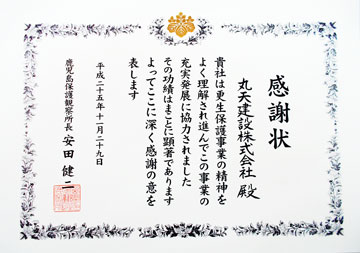 感謝状
丸天建設株式会社 殿
貴社は更生保護事業の精神を
よく理解され進んでこの事業の
充実発展に協力されました
その功績はまことに顕著であります
よってここに深く感謝の意を
表します
平成二十五年十一月二十九日
鹿児島保護観察所長 安田健二